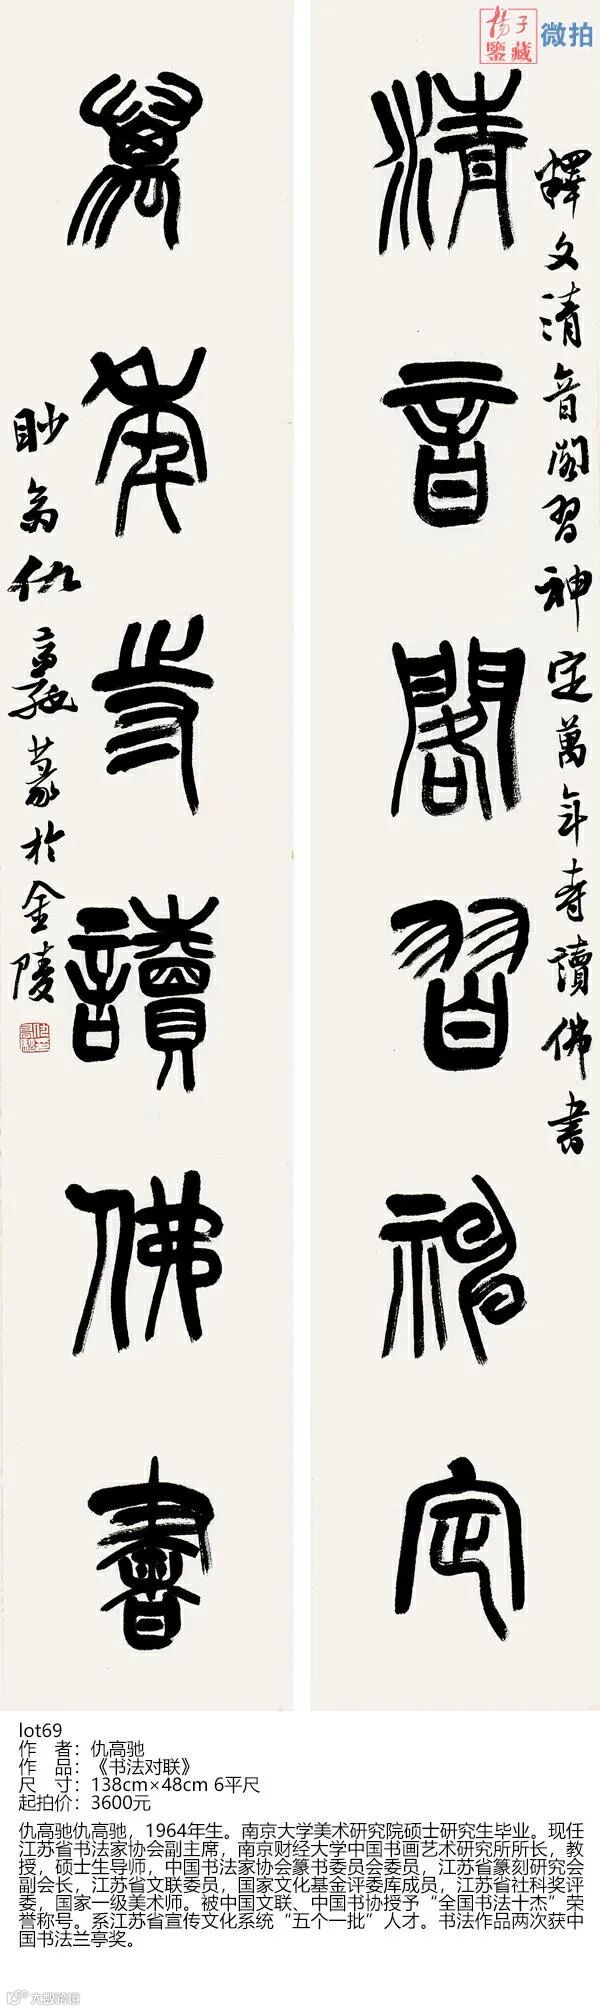 揚子
鑒藏
微拍
清音閣習神定
釋文清音閣習神定萬年壽讀佛書
萬年壽讀佛書
眇翁仇高馳篆於金陵
lot69
作 者：仇高驰
作 品：《书法对联》
尺 寸：138cm×48cm 6平尺
起拍价：3600元
仇高驰仇高驰，1964年生。南京大学美术研究院硕士研究生毕业。现任
江苏省书法家协会副主席，南京财经大学中国书画艺术研究所所长，教
授，硕士生导师，中国书法家协会篆书委员会委员，江苏省篆刻研究会
副会长，江苏省文联委员，国家文化基金评委库成员，江苏省社科奖评
委，国家一级美术师。被中国文联、中国书协授予“全国书法十杰”荣
誉称号。系江苏省宣传文化系统“五个一批”人才。书法作品两次获中
国书法兰亭奖。
大数跨境